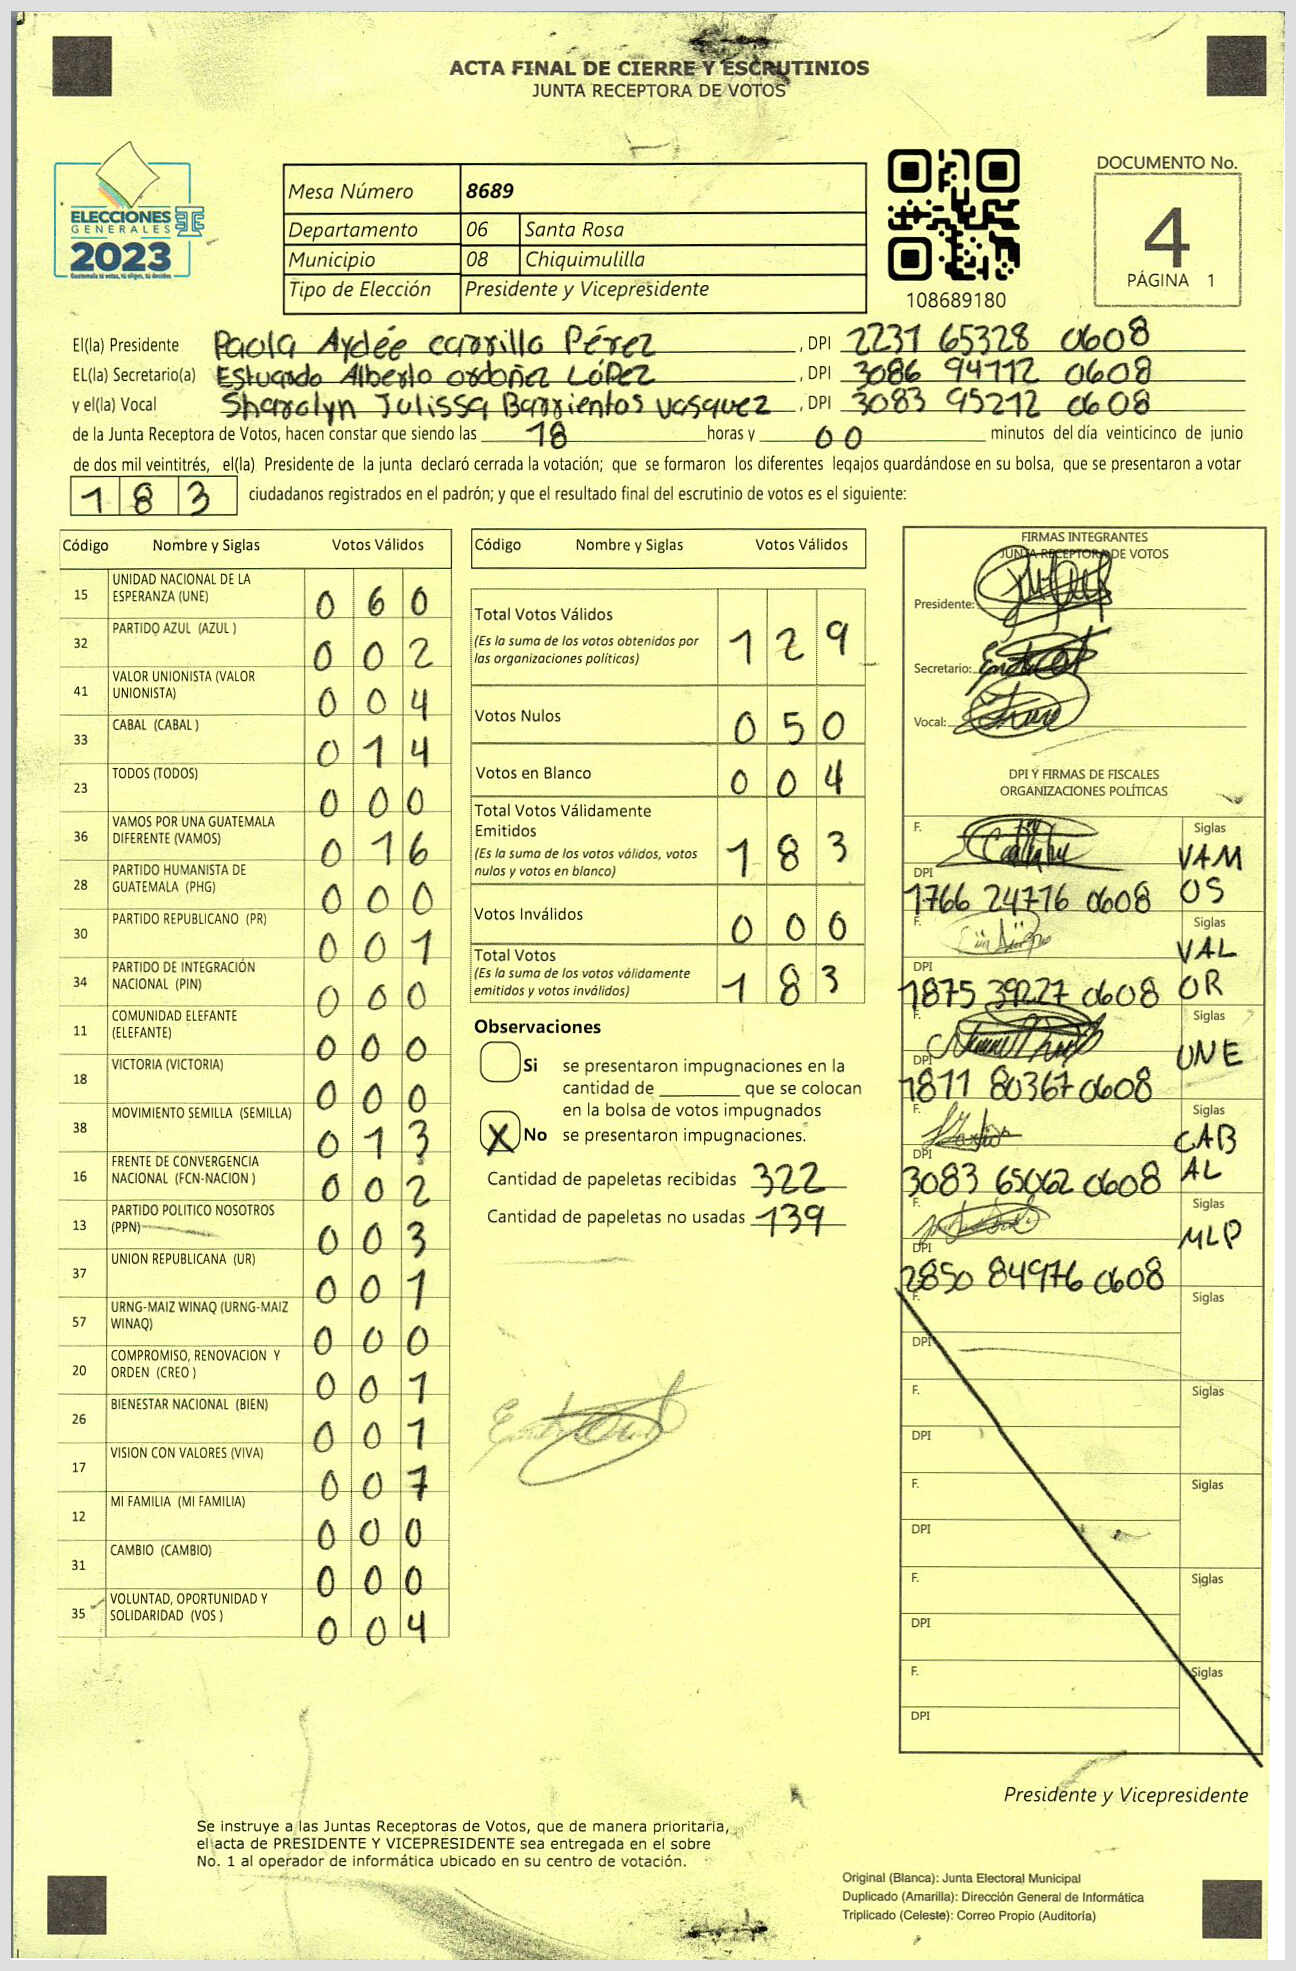 ACTA FINAL DE CIERRE Y ESCRUTINIOS
JUNTA RECEPTORA DE VOTOS
ELECCIONES
GENERALES
2023
Guatemala tú votas, tú eliges, tú decides
Mesa Número 8689
Departamento 06 Santa Rosa
Municipio 08 Chiquimulilla
Tipo de Elección Presidente y Vicepresidente
108689180
DOCUMENTO No.
4
PÁGINA 1
El(la) Presidente Paola Aydée carrillo Pérez , DPI 2231 65328 0608
EL(la) Secretario(a) Estuardo Alberto Ordoñez LóPez , DPI 3086 94112 0608
y el(la) Vocal Sharolyn Julissa Barrientos vasquez , DPI 3083 95212 0608
de la Junta Receptora de Votos, hacen constar que siendo las 18 horas y 00 minutos del día veinticinco de junio
de dos mil veintitrés, el(la) Presidente de la junta declaró cerrada la votación; que se formaron los diferentes legajos guardándose en su bolsa, que se presentaron a votar
183 ciudadanos registrados en el padrón; y que el resultado final del escrutinio de votos es el siguiente:
Código Nombre y Siglas Votos Válidos
15 UNIDAD NACIONAL DE LA
ESPERANZA (UNE) 060
32 PARTIDO AZUL (AZUL ) 002
41 VALOR UNIONISTA (VALOR
UNIONISTA) 004
33 CABAL (CABAL ) 014
23 TODOS (TODOS) 000
36 VAMOS POR UNA GUATEMALA
DIFERENTE (VAMOS) 016
28 PARTIDO HUMANISTA DE
GUATEMALA (PHG) 000
30 PARTIDO REPUBLICANO (PR) 001
34 PARTIDO DE INTEGRACIÓN
NACIONAL (PIN) 000
11 COMUNIDAD ELEFANTE
(ELEFANTE) 000
18 VICTORIA (VICTORIA) 000
38 MOVIMIENTO SEMILLA (SEMILLA) 013
16 FRENTE DE CONVERGENCIA
NACIONAL (FCN-NACION ) 002
13 PARTIDO POLITICO NOSOTROS
(PPN) 003
37 UNION REPUBLICANA (UR) 001
57 URNG-MAIZ WINAQ (URNG-MAIZ
WINAQ) 000
20 COMPROMISO, RENOVACION Y
ORDEN (CREO ) 001
26 BIENESTAR NACIONAL (BIEN) 001
17 VISION CON VALORES (VIVA) 007
12 MI FAMILIA (MI FAMILIA) 000
31 CAMBIO (CAMBIO) 000
35 VOLUNTAD, OPORTUNIDAD Y
SOLIDARIDAD (VOS ) 004
Código Nombre y Siglas Votos Válidos
Total Votos Válidos 129
(Es la suma de los votos obtenidos por
las organizaciones políticas)
Votos Nulos 050
Votos en Blanco 004
Total Votos Válidamente
Emitidos 183
(Es la suma de los votos válidos, votos
nulos y votos en blanco)
Votos Inválidos 000
Total Votos 183
(Es la suma de los votos válidamente
emitidos y votos inválidos)
Observaciones
Si se presentaron impugnaciones en la
cantidad de ________ que se colocan
en la bolsa de votos impugnados
X No se presentaron impugnaciones.
Cantidad de papeletas recibidas 322
Cantidad de papeletas no usadas 139
FIRMAS INTEGRANTES
JUNTA RECEPTORA DE VOTOS
Presidente:
Secretario:
Vocal:
DPI Y FIRMAS DE FISCALES
ORGANIZACIONES POLÍTICAS
F. Siglas
VAMOS
DPI
1766 24776 0608
F. Siglas
VALOR
DPI
1875 39227 0608
F. Siglas
UNE
DPI
1811 80367 0608
F. Siglas
CABAL
DPI
3083 65062 0608
F. Siglas
MLP
DPI
2850 84976 0608
F. Siglas
DPI
F. Siglas
DPI
F. Siglas
DPI
F. Siglas
DPI
F. Siglas
DPI
Presidente y Vicepresidente
Se instruye a las Juntas Receptoras de Votos, que de manera prioritaria,
el acta de PRESIDENTE Y VICEPRESIDENTE sea entregada en el sobre
No. 1 al operador de informática ubicado en su centro de votación.
Original (Blanca): Junta Electoral Municipal
Duplicado (Amarilla): Dirección General de Informática
Triplicado (Celeste): Correo Propio (Auditoría)